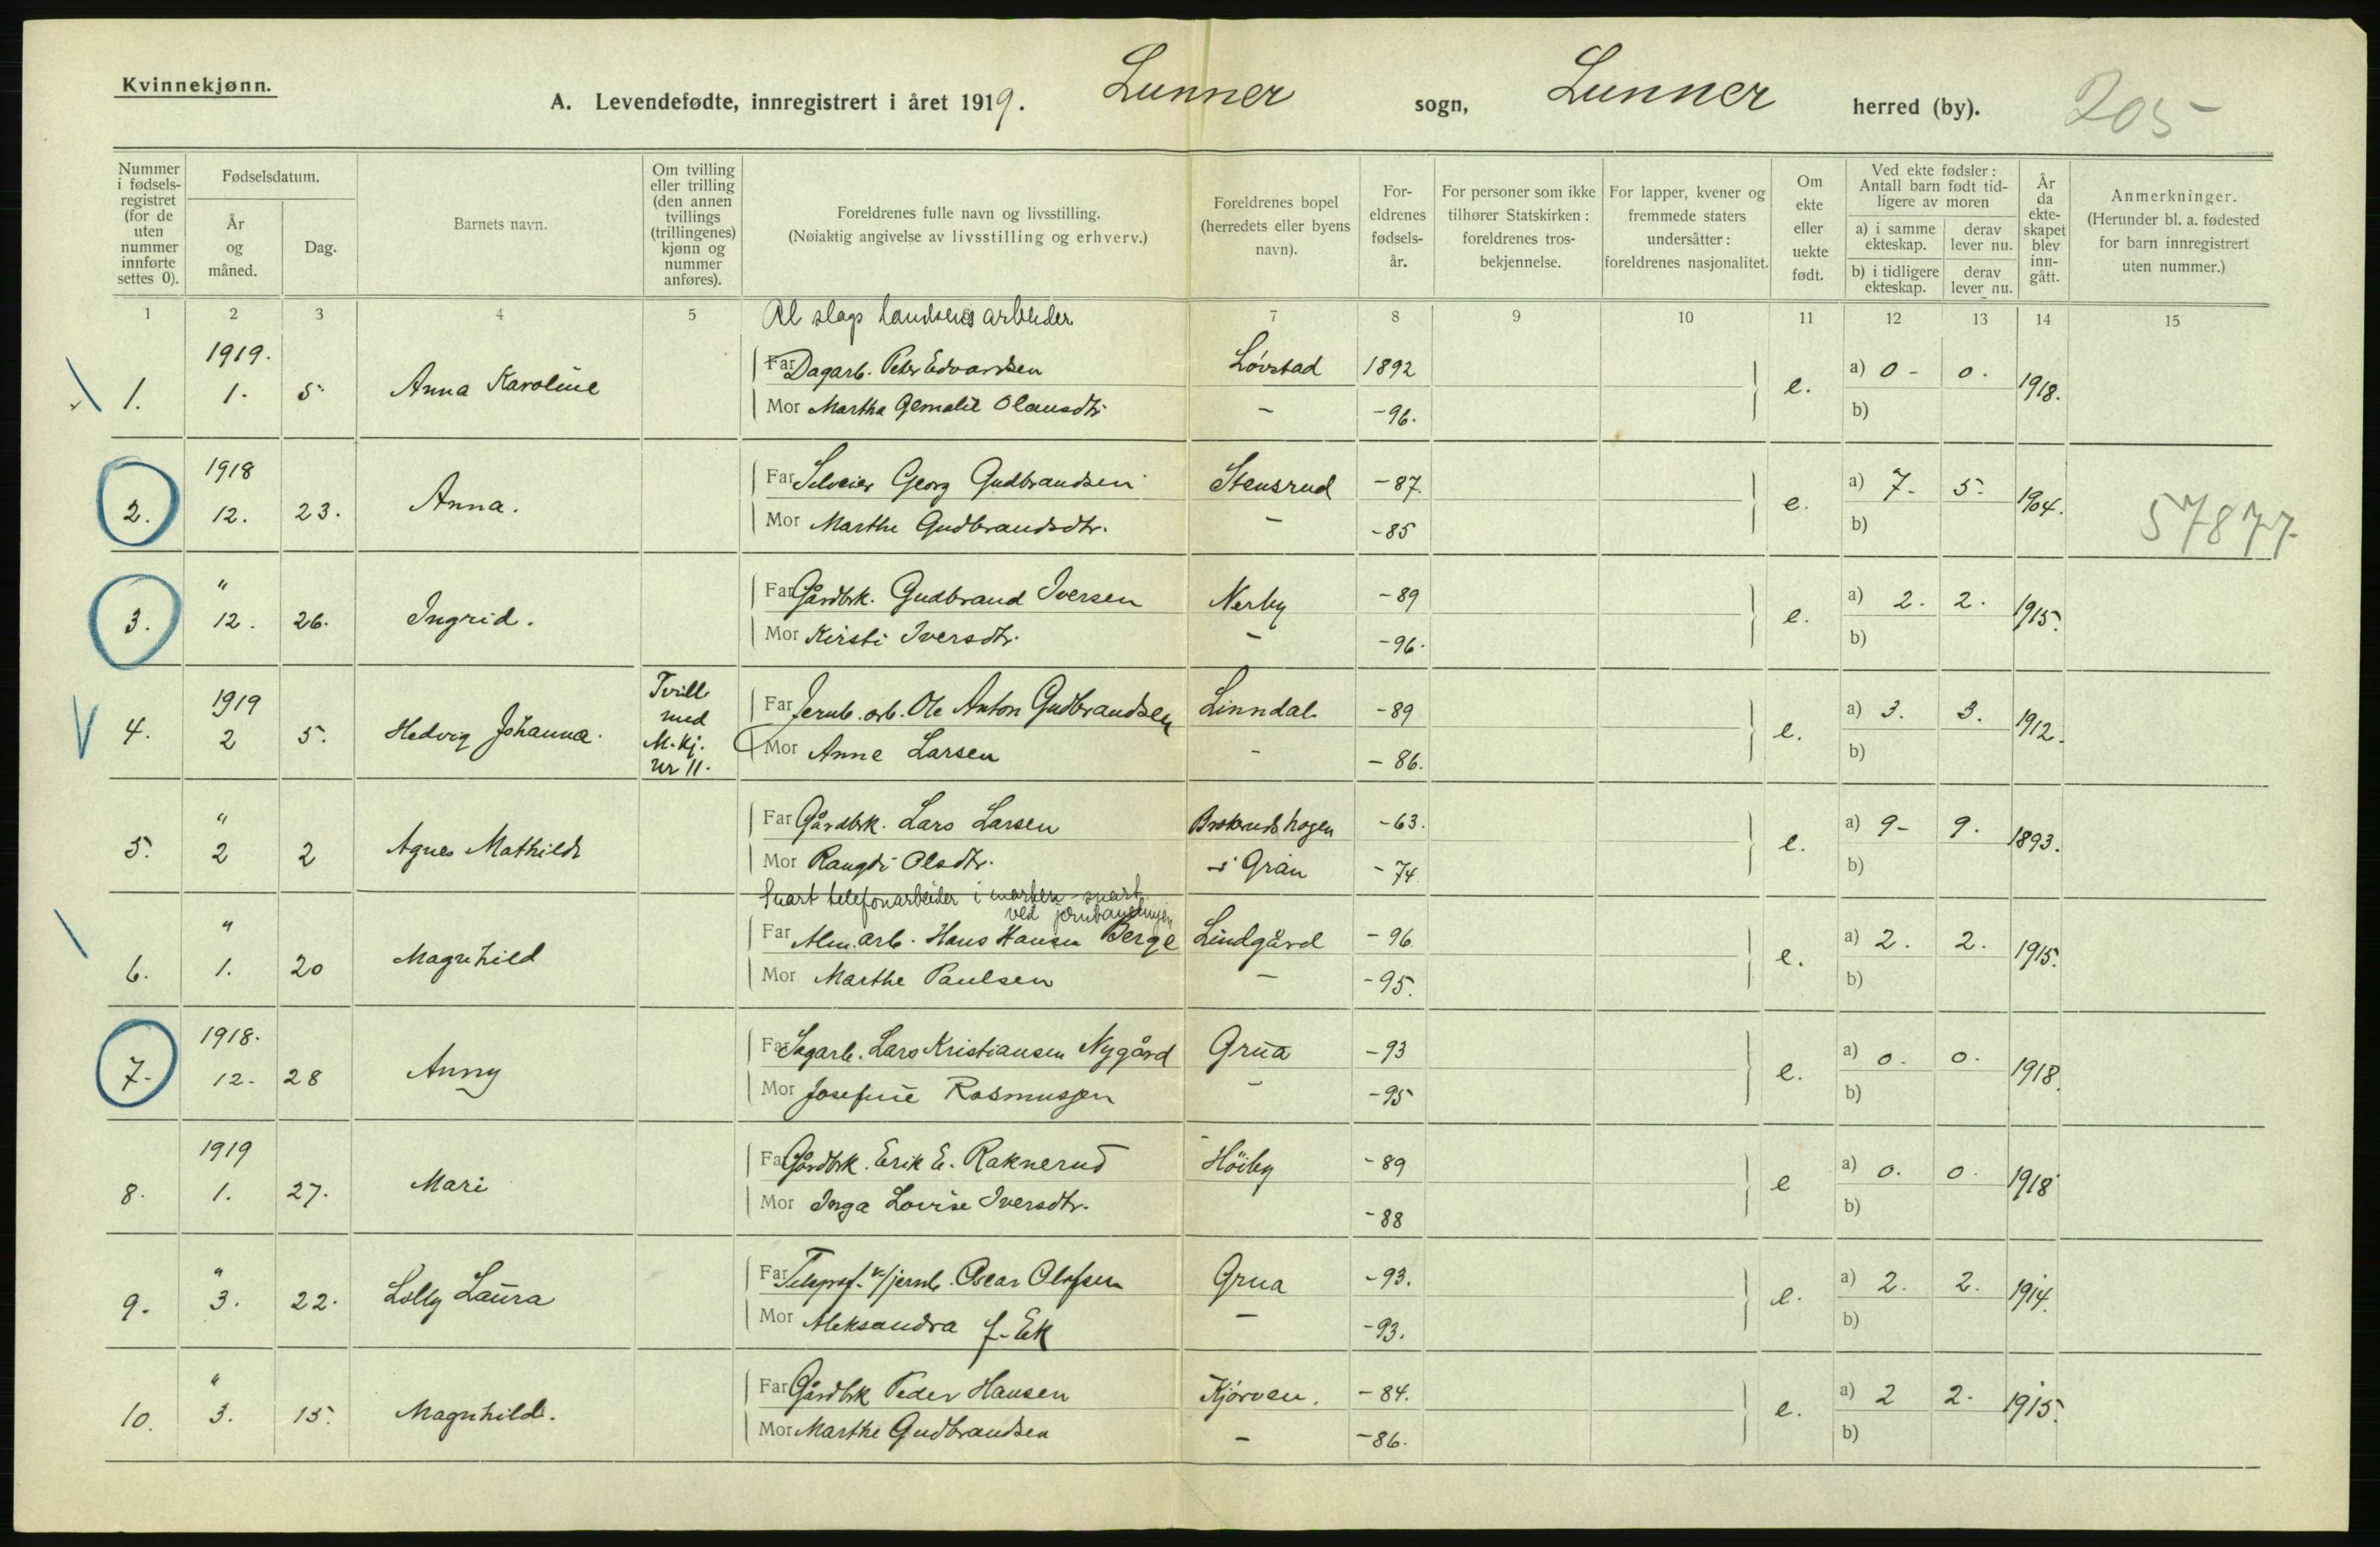 Kvinnekjønn.
A. Levendefødte, innregistrert i året 1919. Lunner sogn, Lunner herred (by). 205
Nummer i fødselsregistret (for de uten nummer innførte settes 0).
Fødselsdatum.
År og måned.
Dag.
Barnets navn.
Om tvilling eller trilling (den annen tvillings (trillingenes) kjønn og nummer anføres).
Foreldrenes fulle navn og livsstilling.
(Nøiaktig angivelse av livsstilling og erhverv.)
Foreldrenes bopel (herredets eller byens navn).
Foreldrenes fødselsår.
For personer som ikke tilhører Statskirken: foreldrenes trosbekjennelse.
For lapper, kvener og fremmede staters undersåtter: foreldrenes nasjonalitet.
Om ekte eller uekte født.
Ved ekte fødsler: Antall barn født tidligere av moren
a) i samme ekteskap.
derav lever nu.
b) i tidligere ekteskap.
derav lever nu.
År da ekteskapet blev inngått.
Anmerkninger.
(Herunder bl. a. fødested for barn innregistrert uten nummer.)
1 2 3 4 5 7 8 9 10 11 12 13 14 15
Al slags arbeider
1. 1919. 1. 5. Anna Karoline
Far Dagarb. Peter Edvardsen Løvstad 1892 e. a) 0 - 0. 1918.
Mor Martha Olausdtr. - -96. b)
2. 1918 12. 23. Anna.
Far Selveier Georg Gudbrandsen Stensrud -87. e. a) 7. 5. 1904.
Mor Marthe Gudbrandsdtr. - -85 b) 57877.
3. " 12. 26. Ingrid.
Far Gårdbrk. Gudbrand Iversen Nerby -89 e. a) 2. 2. 1915.
Mor Kirsti Iversdtr. - -96. b)
4. 1919 2 5. Hedvig Johanna. Tvill. med M.kj. nr 11.
Far Jernb. arb. Ole Anton Gudbrandsen Linndal -89 e. a) 3. 3. 1912.
Mor Anne Larsen - -86. b)
5. " 2 2 Agnes Mathilde
Far Gårdbrk. Lars Larsen -63. e. a) 9- 9. 1893.
Mor Rangdi Olsdtr. i Gran -74 b)
Snart telefonarbeider i marken snart
ved
6. " 1. 20 Magnhild
Far Alm. arb. Hans Hansen Berge Lindgård -96 e. a) 2. 2. 1915.
Mor Marthe Paulsen - -95. b)
7. 1918. 12. 28 Anny
Far Sagarb. Lars Kristiansen Nygård Grua -93 e. a) 0. 0. 1918.
Mor Josefine Rasmussen - -95 b)
8. 1919 1. 27. Mari
Far Gårdbrk. Erik E. Raknerud Höiby -89 e a) 0. 0. 1918
Mor Inga Lovise Iversdtr. -88 b)
9. " 3. 22. Lolly Laura
Far Telegraf. v/jernb. Oscar Olafsen Grua -93. e. a) 2. 2. 1914.
Mor Aleksandra f. Ek - -93. b)
10. " 3. 15. Magnhild.
Far Gårdbrk Peder Hansen Kjørven. -84. e. a) 2 2. 1915.
Mor Marthe Gudbrandsen - -86. b)